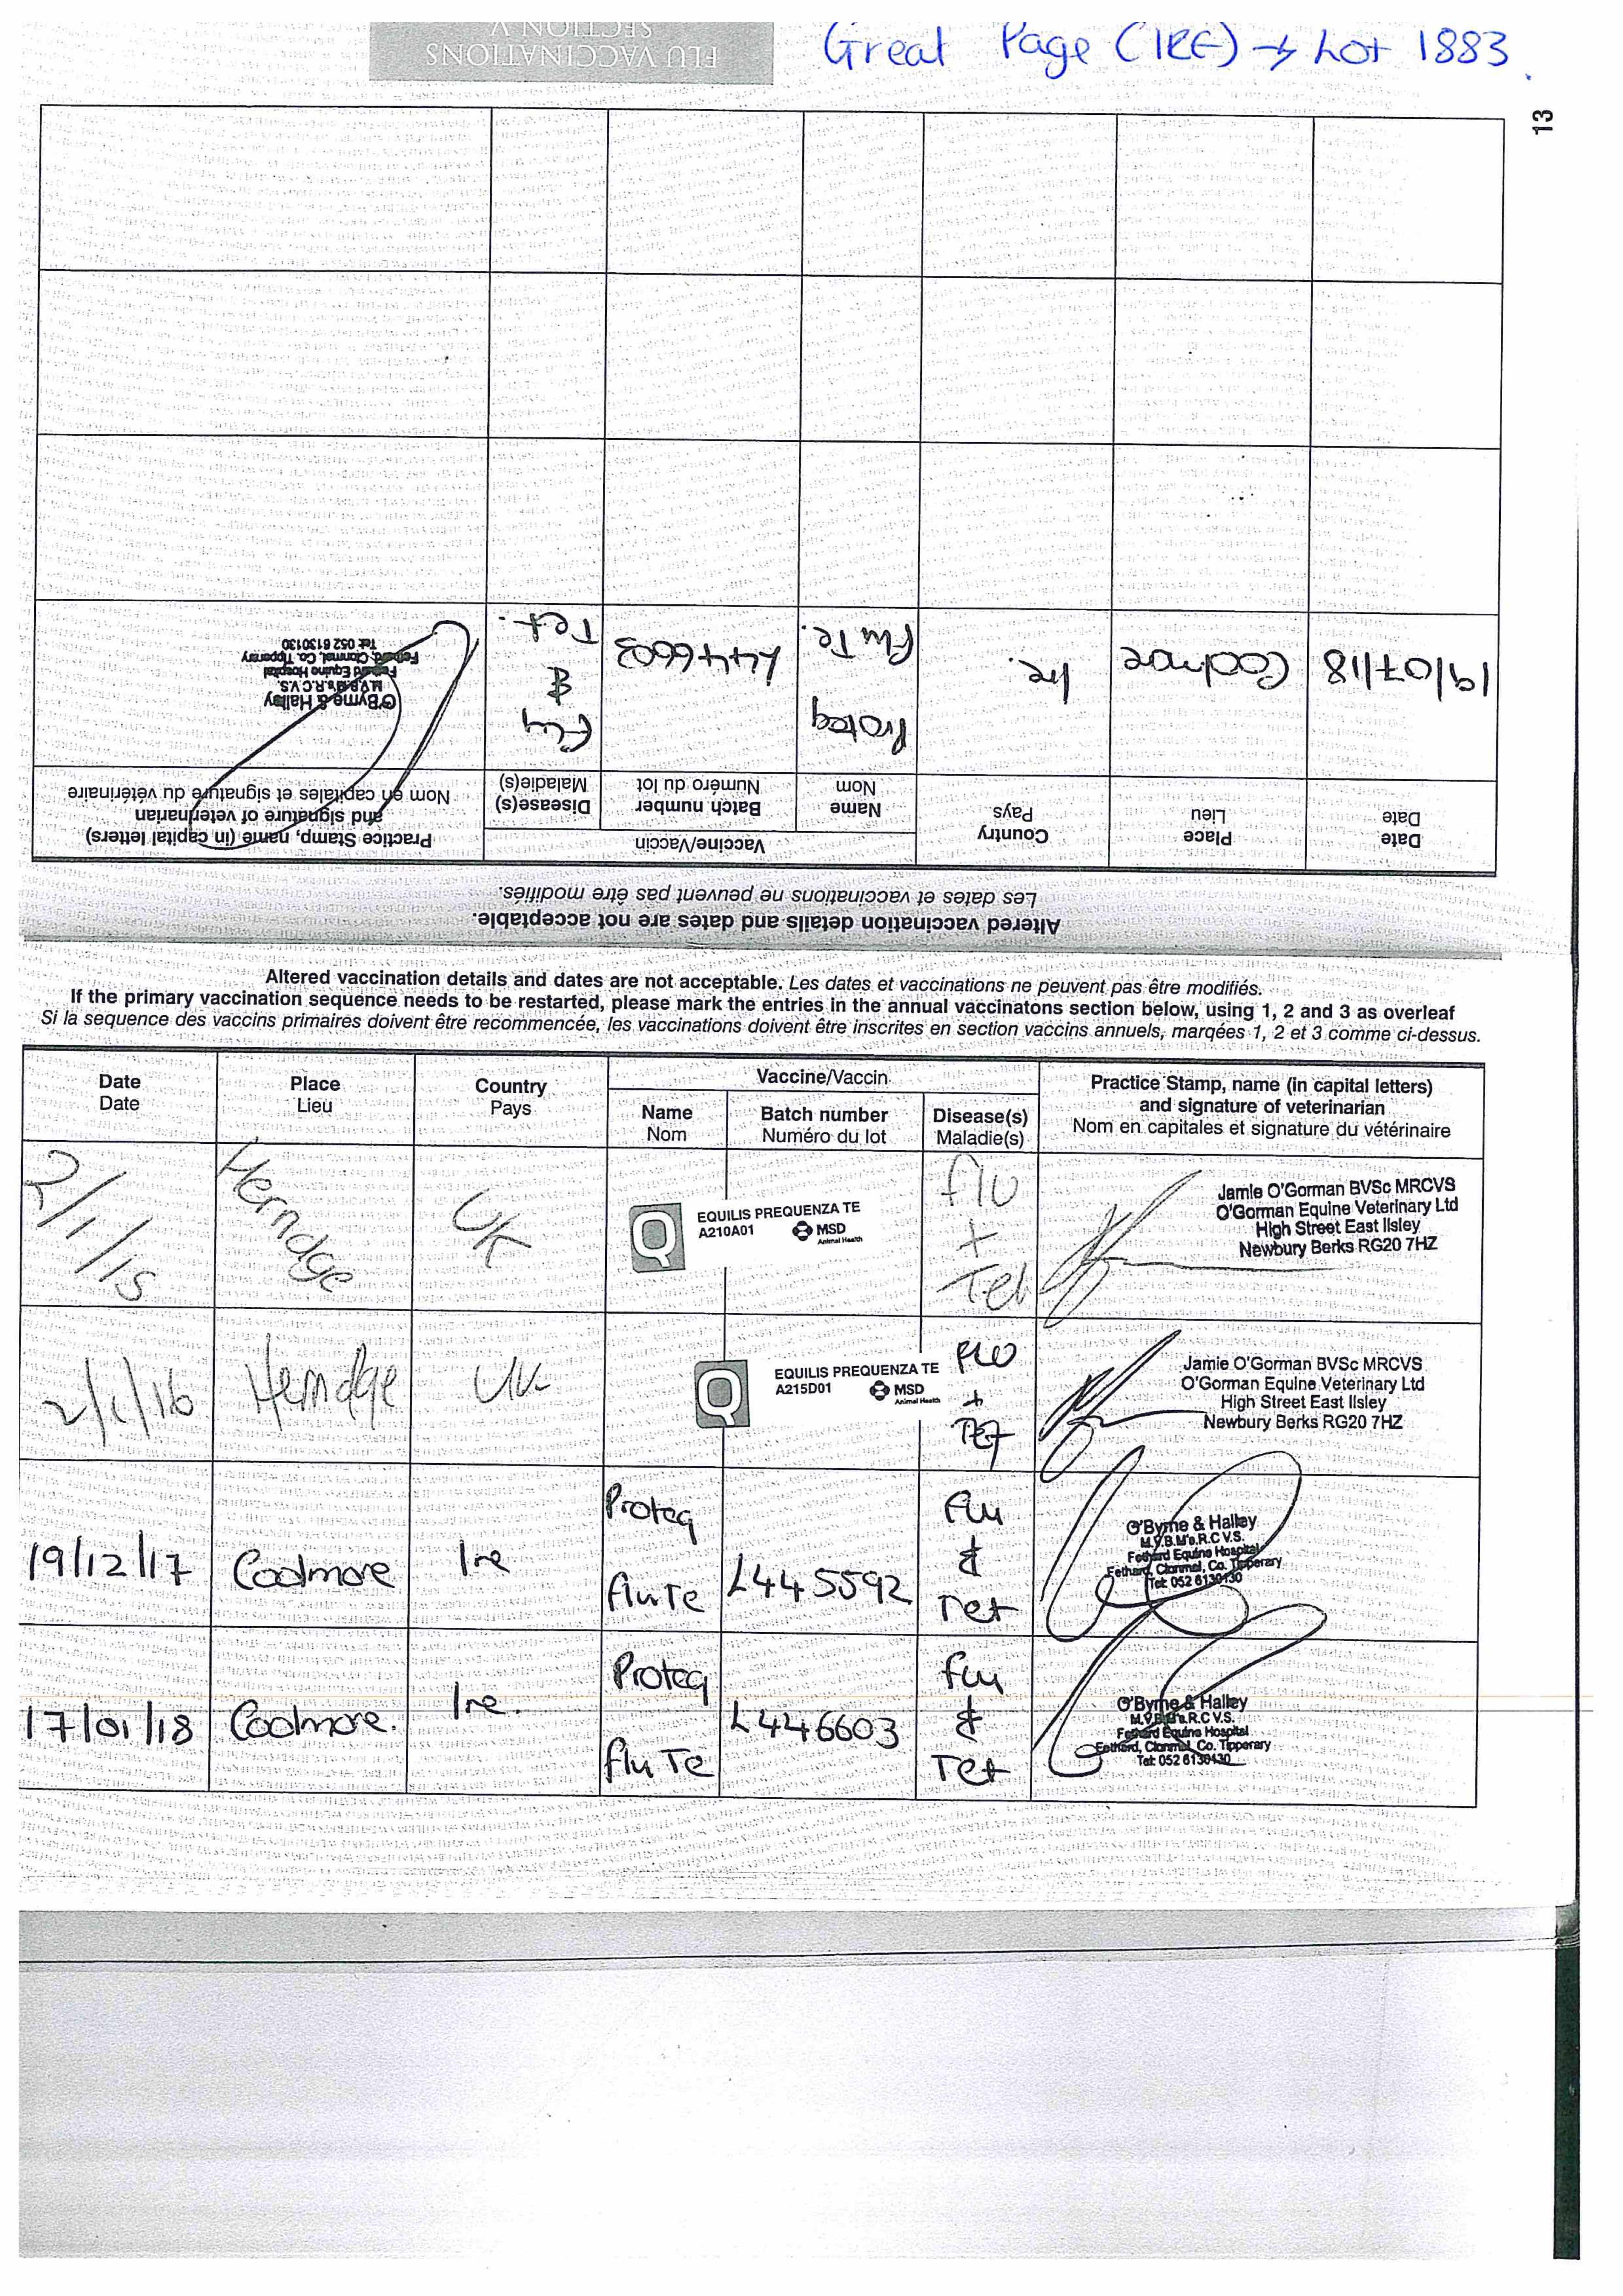 Great Page (IRE) → Lot 1883.
FLU VACCINATIONS
SECTION V
13
Altered vaccination details and dates are not acceptable.
Les dates et vaccinations ne peuvent pas être modifiés.
Date
Date
Place
Lieu
Country
Pays
Vaccine/Vaccin
Name
Nom
Batch number
Numéro du lot
Disease(s)
Maladie(s)
Practice Stamp, name (in capital letters)
and signature of veterinarian
Nom en capitales et signature du vétérinaire
19/07/18
Coolmore
Ire.
Proteq
Flu Te.
L446603
Flu
&
Tet.
O'Byrne & Halley
M.V.B. M's.R.C.V.S.
Fethard Equine Hospital
Fethard, Clonmel, Co. Tipperary
Tel: 052 6130130
Altered vaccination details and dates are not acceptable. Les dates et vaccinations ne peuvent pas être modifiés.
If the primary vaccination sequence needs to be restarted, please mark the entries in the annual vaccinatons section below, using 1, 2 and 3 as overleaf
Si la sequence des vaccins primaires doivent être recommencée, les vaccinations doivent être inscrites en section vaccins annuels, marqées 1, 2 et 3 comme ci-dessus.
Date
Date
Place
Lieu
Country
Pays
Vaccine/Vaccin
Name
Nom
Batch number
Numéro du lot
Disease(s)
Maladie(s)
Practice Stamp, name (in capital letters)
and signature of veterinarian
Nom en capitales et signature du vétérinaire
2/1/15
Herridge
UK
Q
EQUILIS PREQUENZA TE
A210A01
MSD
Animal Health
Flu
+
Tet
Jamie O'Gorman BVSc MRCVS
O'Gorman Equine Veterinary Ltd
High Street East Ilsley
Newbury Berks RG20 7HZ
2/1/16
Herridge
UK
Q
EQUILIS PREQUENZA TE
A215D01
MSD
Animal Health
FLU
+
TET
Jamie O'Gorman BVSc MRCVS
O'Gorman Equine Veterinary Ltd
High Street East Ilsley
Newbury Berks RG20 7HZ
19/12/17
Coolmore
Ire
Proteq
Flu Te
L445592
Flu
&
Tet
O'Byrne & Halley
M.V.B.M's.R.C.V.S.
Fethard Equine Hospital
Fethard, Clonmel, Co. Tipperary
Tel: 052 6130130
17/01/18
Coolmore.
Ire.
Proteq
Flu Te
L446603
Flu
&
Tet
O'Byrne & Halley
M.V.B.M's.R.C.V.S.
Fethard Equine Hospital
Fethard, Clonmel, Co. Tipperary
Tel: 052 6130130